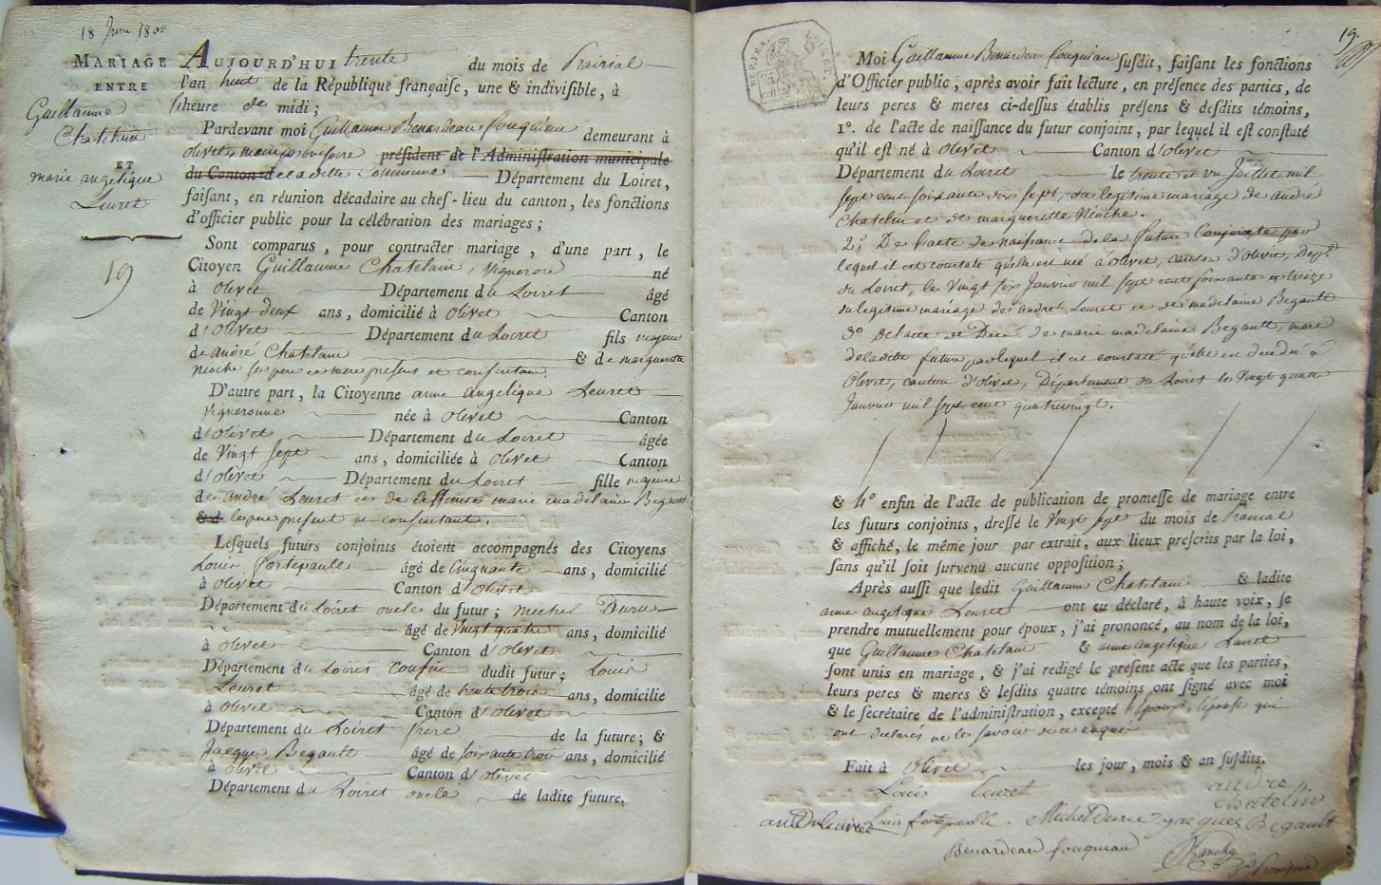 18 Juin 1800
MARIAGE
ENTRE
Guillaume
Chatelain
ET
marie angelique
Leuret
19
AUJOURD'HUI trente du mois de Prairial
l'an huit de la République françaiſe, une & indiviſible, à
heure de midi ;
Pardevant moi Guillaume Benardeau fouquiau demeurant à
olivet, maire provisoire préſident de l'Adminiſtration municipale
du Canton d de ladite Commune Département du Loiret,
faiſant, en réunion décadaire au chef-lieu du canton, les fonctions
d'officier public pour la célébration des mariages ;
Sont comparus, pour contracter mariage, d'une part, le
Citoyen Guillaume Chatelain, vigneron né
à olivet Département du Loiret âgé
de Vingt deux ans, domicilié à olivet Canton
d'olivet Département du Loiret fils mineur
de andré Chatelain & de marguerite
Nioche ses pere et mere present et consentan
D'autre part, la Citoyenne anne angelique Leuret
vigneronne née à olivet Canton
d'olivet Département du Loiret âgée
de Vingt sept ans, domiciliée à olivet Canton
d'olivet Département du Loiret fille majeure
de andré Leuret et de deffunte marie madelaine Begault
& d le pere present et consentant.
Leſquels futurs conjoints étoient accompagnés des Citoyens
Louis fortepaulle âgé de Cinquante ans, domicilié
à olivet Canton d'olivet
Département du Loiret oncle du futur ; michel Duru
âgé de Vingt quatre ans, domicilié
à olivet Canton d'olivet
Département du Loiret cousin dudit futur ; Louis
Leuret âgé de trente trois ans, domicilié
à olivet Canton d'olivet
Département du Loiret frere de la future ; &
Jacques Begault âgé de soixante trois ans, domicilié
à olivet Canton d'olivet
Département du Loiret oncle de ladite future,
19
Moi Guillaume Benardeau fouquiau ſuſdit, faiſant les fonctions
d'Officier public, après avoir fait lecture, en préſence des parties, de
leurs peres & meres ci-deſſus établis préſens & deſdits témoins,
1°. de l'acte de naiſſance du futur conjoint, par lequel il eſt conſtaté
qu'il eſt né à olivet Canton d'olivet
Département du Loiret le trente et un Juillet mil
sept cent soixante dix sept, du legitime mariage de andré
Chatelin et de marguerite Nioche.
2° De l'acte de naissance de la future Conjointe par
lequel il est constaté qu'elle est née à olivet, canton d'olivet, Dept
du Loiret, le Vingt six Janvier mil sept cent soixante et treize
du legitime mariage de andré Leuret et de madelaine Begault
3° de l'acte de Décé de marie madelaine Begault, mere
de ladite future par lequel il est constaté qu'elle est decedée à
Olivet, canton d'olivet, Département du Loiret le Vingt quatre
Janvier mil sept cent quatrevingt.
& 4° enfin de l'acte de publication de promeſſe de mariage entre
les futurs conjoints, dreſſé le Vingt sept du mois de Prairial
& affiché, le même jour par extrait, aux lieux preſcrits par la loi,
ſans qu'il ſoit ſurvenu aucune oppoſition ;
Après auſſi que ledit Guillaume Chatelain & ladite
anne angelique Leuret ont eu déclaré, à haute voix, ſe
prendre mutuellement pour époux, j'ai prononcé, au nom de la loi,
que Guillaume Chatelain & anne angelique Leuret
ſont unis en mariage, & j'ai redigé le preſent acte que les parties,
leurs peres & meres & leſdits quatre témoins ont ſigné avec moi
& le ſecrétaire de l'adminiſtration, excepté l'époux, l'épouse qui
ont déclaré ne le savoir de ce enquis
Fait à olivet les jour, mois & an ſuſdits.
Louis leuret andre chatelin
andré leuret Louis fortepaulle Michel Duru Jacques Begault
Benardeau fouquiau